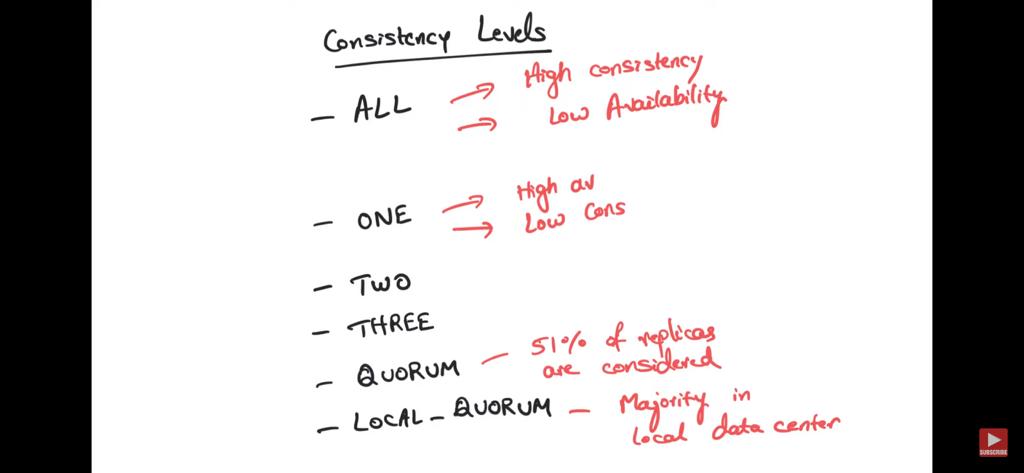 Consistency Levels
- ALL → High consistency
→ Low Availability
- ONE → High av
→ Low Cons
- TWO
- THREE
- QUORUM - 51% of replicas
are considered
- LOCAL - QUORUM - Majority in
local data center
SUBSCRIBE